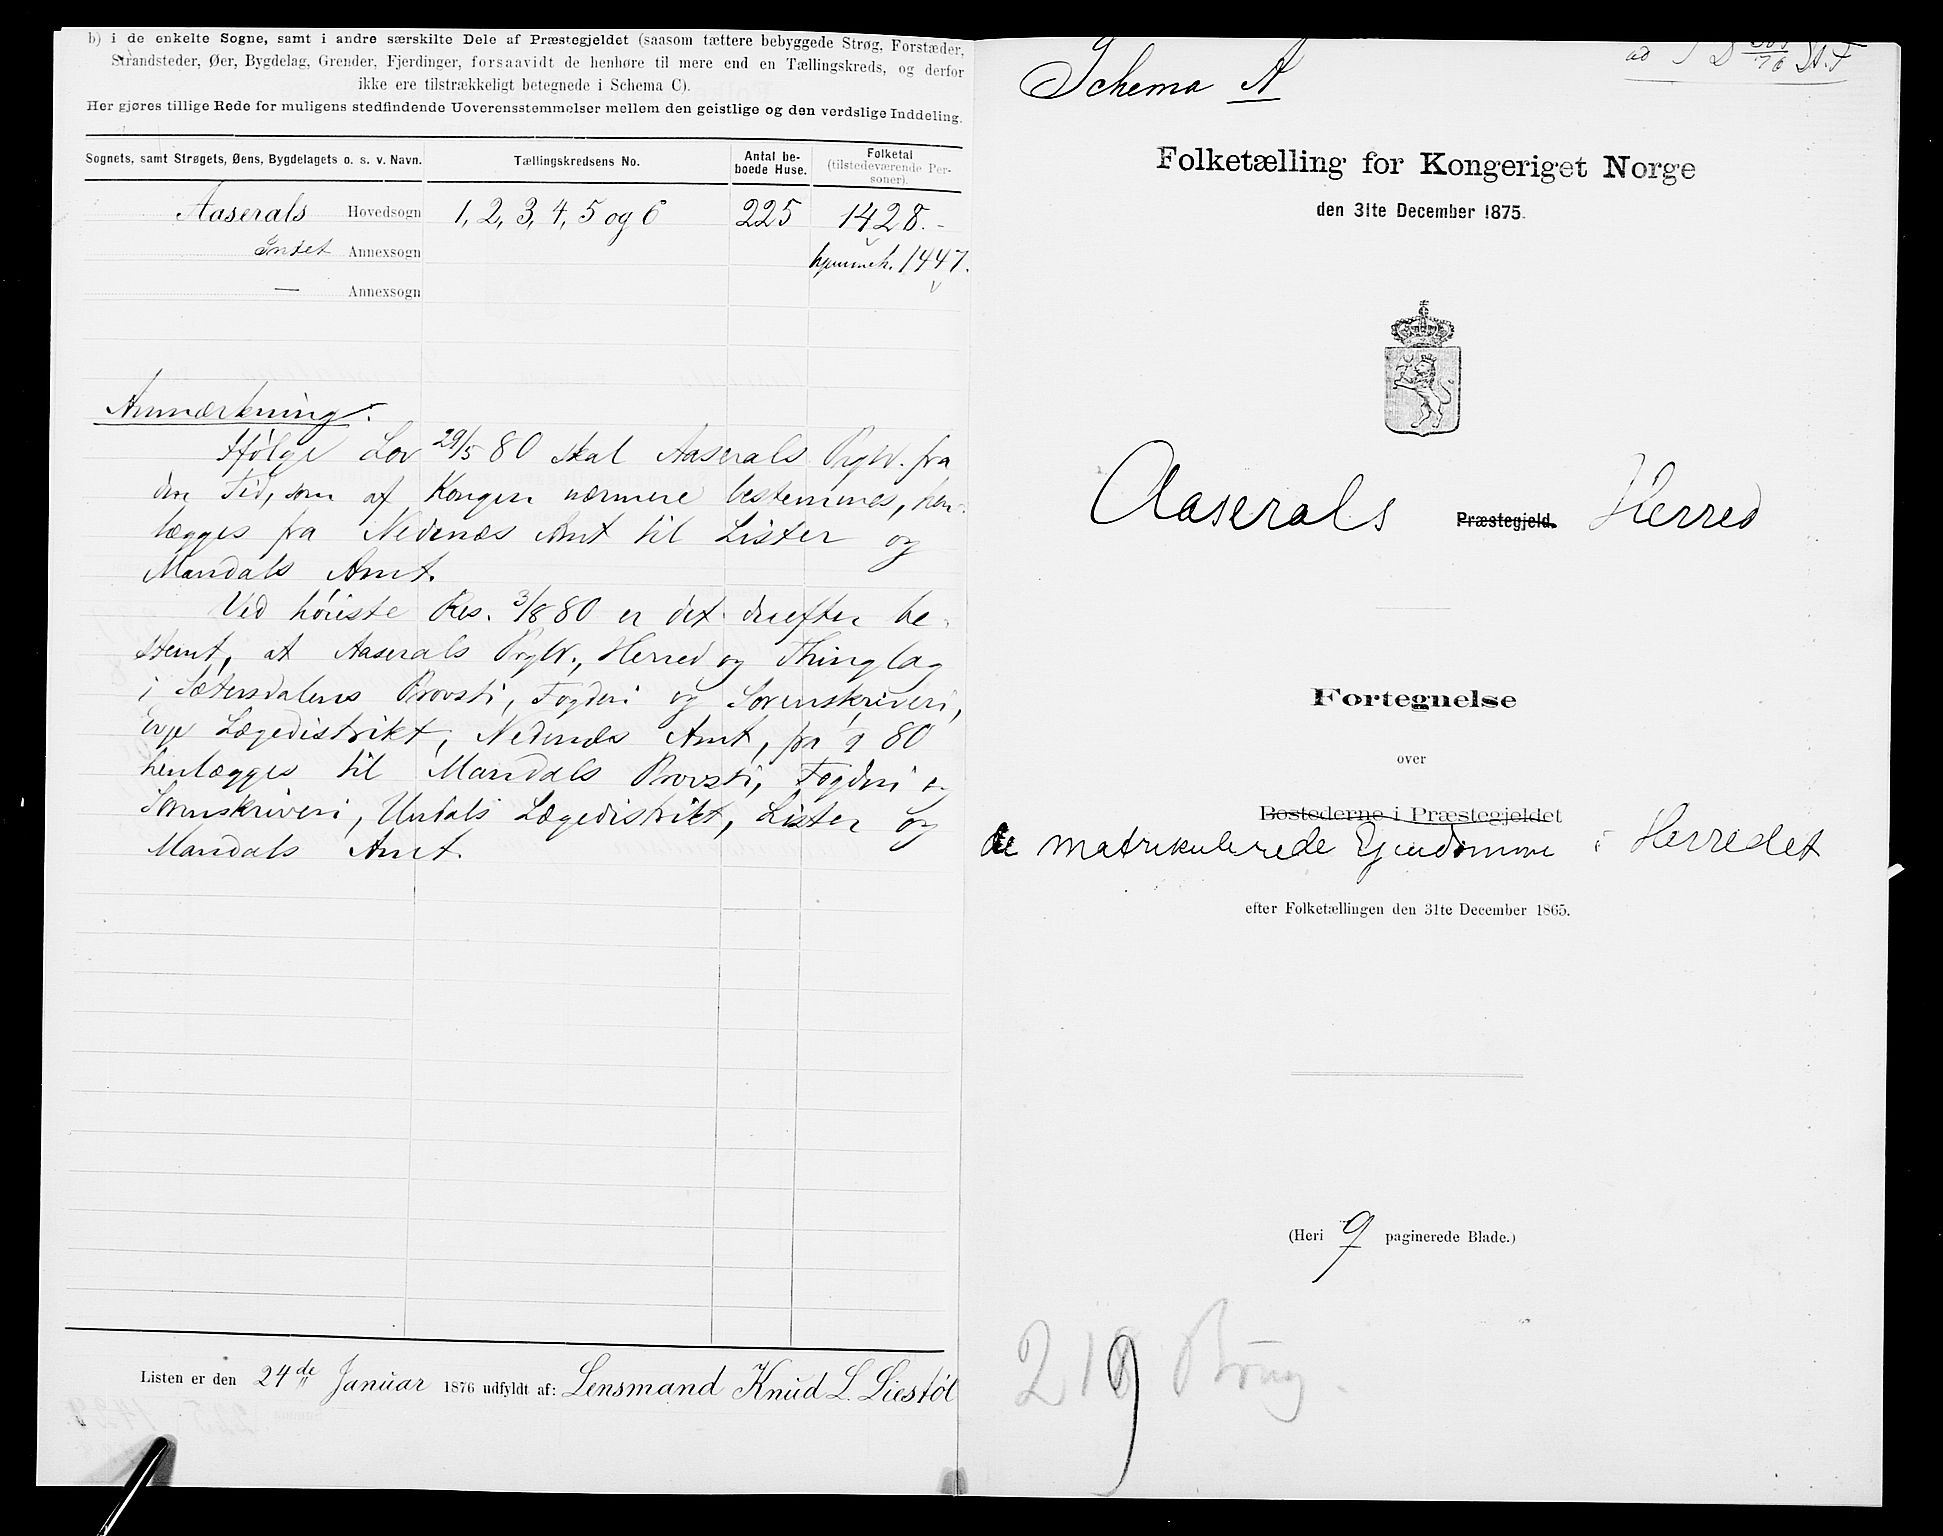 b) i de enkelte Sogne, samt i andre særskilte Dele af Præstegjeldet (saasom tættere bebyggede Strøg, Forstæder,
Strandsteder, Øer, Bygdelag, Grender, Fjerdinger, forsaavidt de henhøre til mere end en Tællingskreds, og derfor
ikke ere tilstrækkeligt betegnede i Schema C).
Her gjøres tillige Rede for muligens stedfindende Uoverensstemmelser mellem den geistlige og den verdslige Inddeling.
Sognets, samt Strøgets, Øens, Bygdelagets o. s. v. Navn. Tællingskredsens No. Antal be-
boede Huse. Folketal
(tilstedeværende Per-
soner).
Aaserals Hovedsogn 1, 2, 3, 4, 5 og 6 225 1428.-
Intet Annexsogn hjemmeh. 1447.
— Annexsogn
Anmærkning:
Ifølge Lov 29/5 80 skal Aaserals Prgld. fra
den Tid, som af Kongen nærmere bestemmes, hen-
lægges fra Nedenæs Amt til Lister og
Mandals Amt.
Ved høieste Res. 3/8 80 er det derefter be-
stemt, at Aaserals Prgld., Herred og Thinglag
i Sætersdalens Provsti, Fogderi og Sorenskriveri,
Evje Lægedistrikt, Nedenæs Amt, fra 80
henlægges til Mandals Provsti, Fogderi og
Sorenskriveri, Undals Lægedistrikt, Lister og
Mandals Amt.
Listen er den 24de Januar 1876 udfyldt af: Lensmand Knud L. Liestöl
Schema A
ad J D 76 St. F
Folketælling for Kongeriget Norge
den 31te December 1875.
Aaserals Præstegjeld. Herred
Fortegnelse
over
Bostederne i Præstegjeldet
de matrikulerede Ejendomme i Herredet
efter Folketællingen den 31te December 1865.
(Heri 9 paginerede Blade.)
219 Brug.